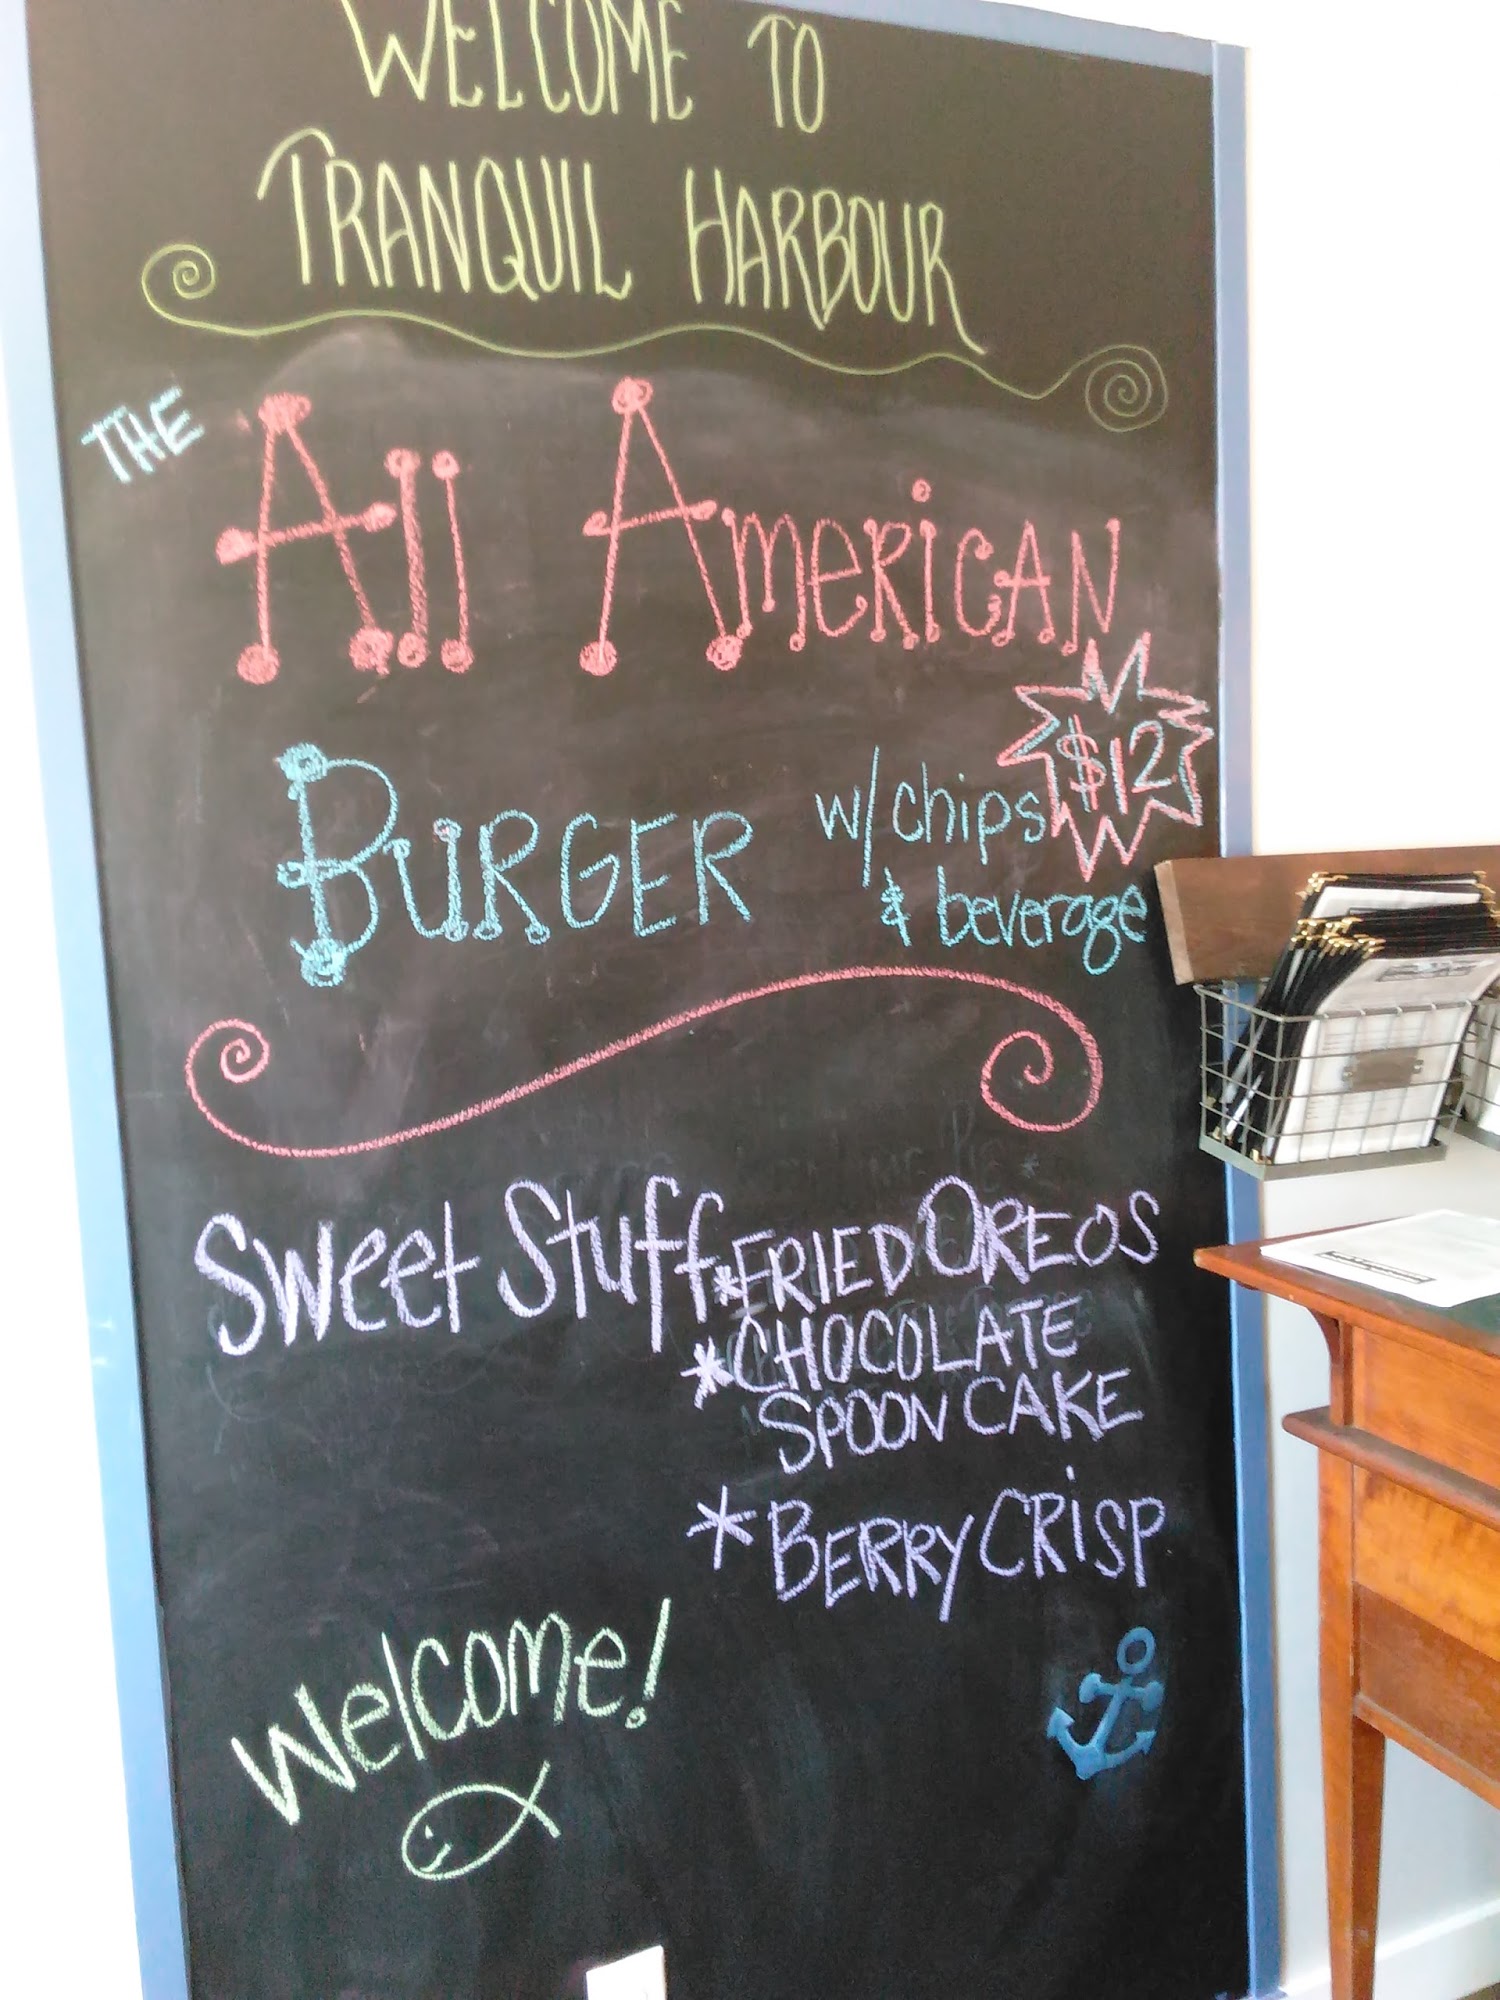 WELCOME TO
TRANQUIL HARBOUR
THE
All American
BURGER
w/chips
& beverage
$12
Sweet Stuff
*FRIED OREOS
*CHOCOLATE
SPOON CAKE
*BERRY CRiSP
Welcome!